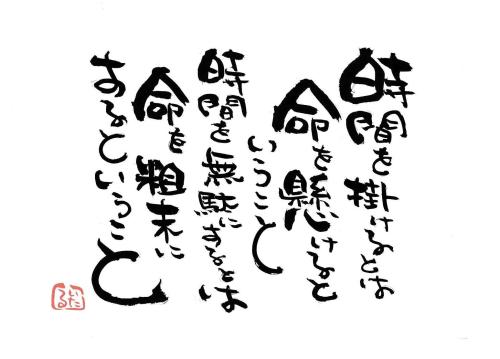 時間を掛けるとは
命を懸けると
いうこと
時間を無駄にするとは
命を粗末に
するということ